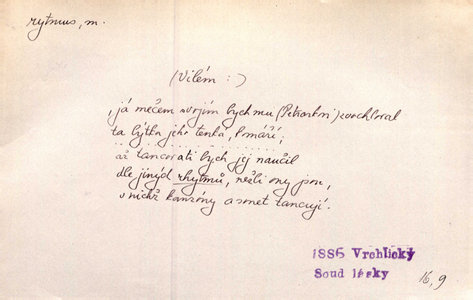 rytmus, m.
(Vilém:)
, já mečem svojím bych mu (Petrarkovi) zaochloral
ta lýtka jeho tenká, 
až tancovati bych jej naučil
dle jiných rhytmů, nežli ony jsou,
v nichž kanzóny a sonet tancují.
1886 Vrchlický
Soud lásky
16,9